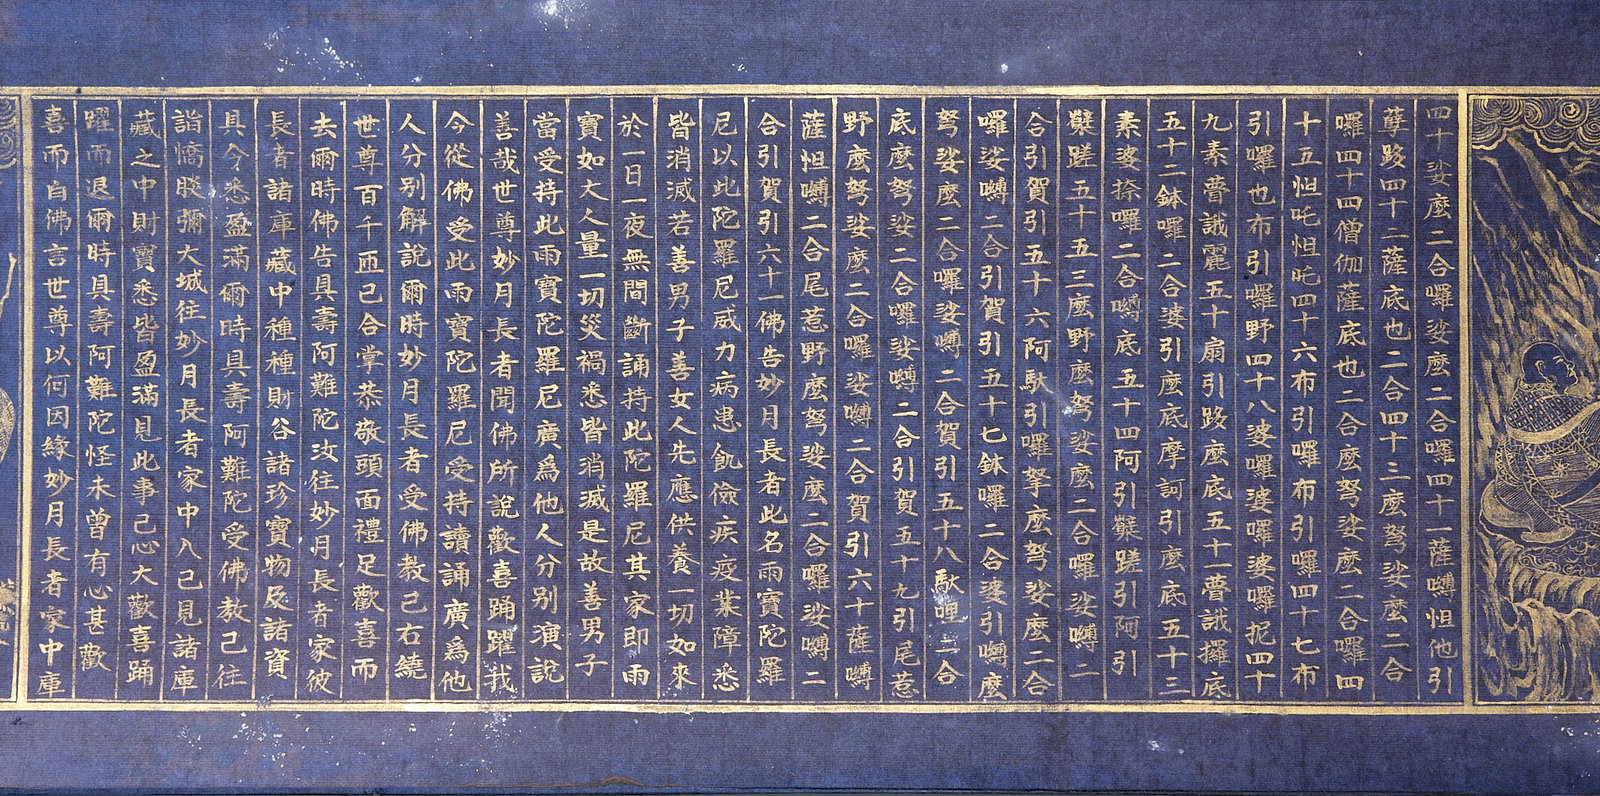 四十娑麼二合囉娑麼二合囉四十一薩嚩怛他引
孽跢四十二薩底也二合四十三麼弩娑麼二合
囉四十四僧伽薩底也二合麼弩娑麼二合囉四
十五怛吒怛吒四十六布引囉布引囉四十七布
引囉也布引囉野四十八婆囉婆囉婆囉抳四十
九素瞢誐麗五十扇引跢麼底五十一瞢誐攞底
五十二鉢囉二合婆引麼底摩訶引麼底五十三
素婆捺囉二合嚩底五十四阿引蘖蹉引阿引
蘖蹉五十五三麼野麼弩娑麼二合囉娑嚩二
合引賀引五十六阿馱引囉拏麼弩娑麼二合
囉娑嚩二合引賀引五十七鉢囉二合婆引嚩麼
弩娑麼二合囉娑嚩二合賀引五十八馱哩二合
底麼弩娑二合囉娑嚩二合引賀五十九引尾惹
野麼弩娑麼二合囉娑嚩二合賀引六十薩嚩
薩怛嚩二合尾惹野麼弩娑麼二合囉娑嚩二
合引賀引六十一佛告妙月長者此名雨寶陀羅
尼以此陀羅尼威力病患飢儉疾疫業障悉
皆消滅若善男子善女人先應供養一切如來
於一日一夜無間斷誦持此陀羅尼其家即雨
寶如大人量一切災禍悉皆消滅是故善男子
當受持此雨寶陀羅尼廣為他人分別演說
善哉世尊妙月長者聞佛所說歡喜踊躍我
今從佛受此雨寶陀羅尼受持讀誦廣為他
人分別解說爾時妙月長者受佛教已右繞
世尊百千匝已合掌恭敬頭面禮足歡喜而
去爾時佛告具壽阿難陀汝往妙月長者家彼
長者諸庫藏中種種財谷諸珍寶物及諸資
具今悉盈滿爾時具壽阿難陀受佛教已往
詣憍睒彌大城往妙月長者家中入已見諸庫
藏之中財寶悉皆盈滿見此事已心大歡喜踊
躍而退爾時具壽阿難陀怪未曾有心甚歡
喜而自佛言世尊以何因緣妙月長者家中庫